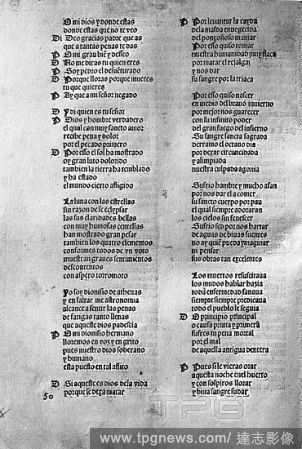 O mi dios y donde estas
donde estas que no te veo
Di Dios gracias padre que as
que a tantas penas te das
P O mi gran bie y desseo
D No me diras tu quien eres
P Soy pedro el desauenturado
D Porque lloras porque mueres
tu que quieres
P Ay que a mi señor he negado
D Y di quien es tu señor
P Dios y hombre verdadero
el qual con muy sancto amor
recibe pena y dolor
por el pecado primero
D Por esso el sol ha mostrado
oy gran luto dolorido
tambien la tierra ha temblado
y ha estado
el mundo cierto afligido
La luna con las estrellas
sin razon de se eclypsar
las sus claridades bellas
con muy humosas centellas
han mostrado gran pesar
tambien los quatro elementos
conformes todos de vn voto
muestran graues sentimientos
descontentos
con aspero terromoto
Yo soy dionisio de athenas
y en saltar mi astronomia
alcance a sentir las penas
de fangas tanto llenas
que aqueste dios padescia
P O mi dionisio hermano
lloremos en voz y en grito
pues nuestro dios soberano
y humano
esta puesto en tal aflito
D Si aqueste es dios dela vida
porque se dexa matar
50
P Por leuantar la cayda
dela maluada enuegecida
del ponçoñoso maniar
P Por esso quiso tomar
nuestra humanidad muy flaca
por matar el rejalgar
y nos dar
su sangre por la triaca
Por esso quiso nascer
en medio del brauo inuierno
por mejor nos guarecer
con su infinito poder
del gran fuego del infierno
Su sangre sancta sagrada
derramo el octauo dia
por dexar circuncidada
y alimpiada
nuestra culpada agonia
Sufrio hambre y mucho afan
por nos dar el a comer
su sancto cuerpo por pan
el qual siempre adoraran
los cielos sin fenescer
Sufrio sed por nos hartar
de aguas de biuas fuentes
no ay quié pueda ymaginar
ni pensar
sus obras tan excelentes
Los muertos resuscitaua
los mudos hablar hazia
todo enfermedad sanaua
siempre siempre predicaua
todo el pueblo le seguia
D O principio principal
o causa prima y primera
sufres tu pena mortal
por el mal
de aquella antigua dentera
P Pues si le vieras orar
aquesta noche enel huerto
y con sospiros llorar
y biua sangre sudar
www.tpgnews.com / 達志影像
TPG